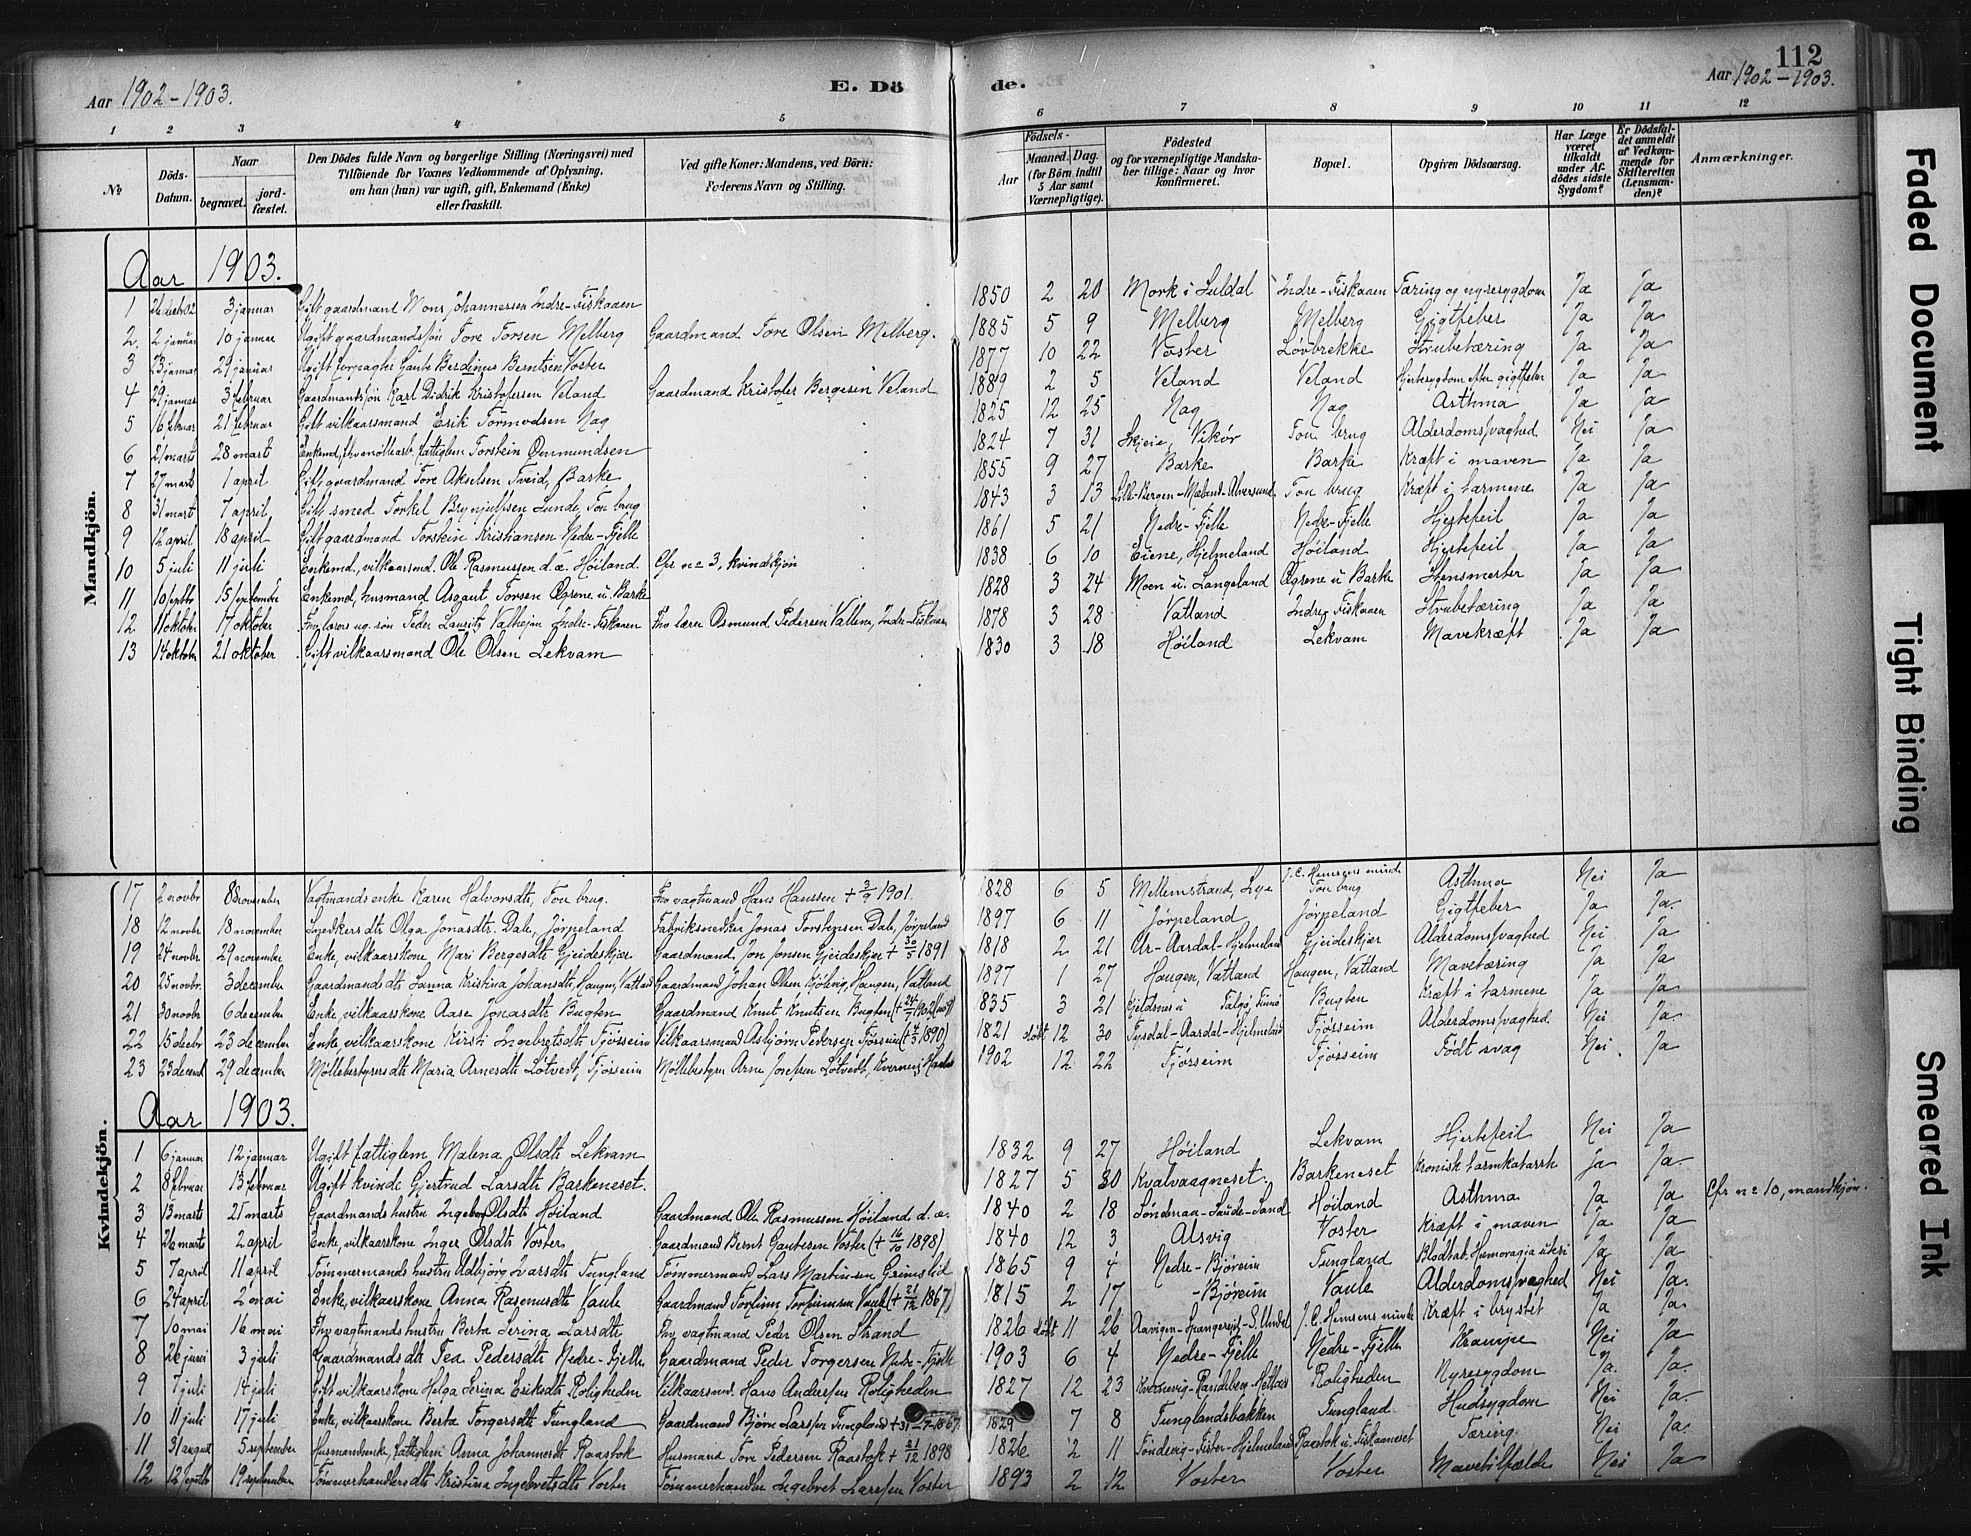 Aar 1902-1903. E. Dö de. 112
Aar 1902-1903.
1 2 3 4 5 6 7 8 9 10 11 12
No
Döds-Datum.
Naar
begravet.
jord-fæstet.
Den Dödes fulde Navn og borgerlige Stilling (Næringsvei) med
Tilföiende for Voxnes Vedkommende af Oplysning,
om han (hun) var ugift, gift, Enkemand (Enke)
eller fraskilt.
Ved gifte Koner: Mandens, ved Börn:
Faderens Navn og Stilling.
Födsels-
Aar
Maaned. Dag.
(for Börn indtil
5 Aar samt
Værnepligtige).
Födested
og for værnepligtige Mandska-
ber tillige: Naar og hvor
konfirmeret.
Bopæl.
Opgiven Dödsaarsag.
Har Læge
været
tilkaldt
under Af-
dödes sidste
Sygdom?
Er Dödsfal-
det anmeldt
af Vedkom-
mende for
Skifteretten
(Lensman-
den)?
Anmærkninger.
Mandkjön.
Aar 1903.
1 26 decbr 02 3 januar Gift gaardmand Mons Johannessen Indre-Fiskaaen 1850 2 20 Mork i Suldal Indre-Fiskaaen Tæring og nyresygdom Ja Ja
2. 2 januar 10 januar Ugift gaardmandssøn Tore Torsen Melberg Gaardmand Tore Olsen Melberg. 1885 5 9 Melberg Melberg Gigtfeber Ja Ja
3 23 januar 29 januar Ugift forpagter Gaute Berdinus Berntsen Voster 1877 10 22 Voster Løvbrekke Strubetæring Ja Ja
4 29 januar 3 februar Gaardmandssøn Karl Didrik Kristofersen Veland Gaardmand Kristofer Bergesen Veland 1889 2 5 Veland Veland Hjertesygdom efter gigtfeber Ja Ja
5 16 februar 21 februar Gift vilkaarsmand Erik Tormodsen Nag 1825 12 25 Nag Nag Asthma Ja Ja
6 21 marts 28 mart Enkemd, fattiglem Torstein Ommundsen 1824 7 31 Skjeie, Vikör Tou brug Alderdomssvaghed Nei Ja
7 27 marts 1 april Gift gaardmand Tore Akselsen Tveid, Barke 1855 9 27 Barke Barke Kræft i maven Ja Ja
8 31 mart 7 april Gift smed Torkel Brynjulfsen Lunde, Tou brug 1843 3 13 Tou brug Kræft i tarmene Ja Ja
9 12 april 18 april Gift gaardmand Torstein Kristiansen Nedre-Fjelle 1861 5 21 Nedre-Fjelle Nedre-Fjelle Hjertefeil Ja Ja
10 5 juli 11 juli Enkemd, vilkaarsmd. Ole Rasmussen d.æ. Höiland Cfr no 3, kvindekjön 1838 6 10 Eiene, Hjelmeland Höiland Hjertefeil Ja Ja
11 10 septbr 15 september Enkemd, husmand Asgaut Torsen Øgrene u. Barke 1828 3 24 Moen u. Langeland Øgrene u Barke Stensmerter Ja Ja
12 11 oktobr 17 oktober Fhv lærers ug. søn Peder Lauritz Valhejm Indre-Fiskaaen Fhv lærer Osmund Pedersen Vallem, Indre-Fiskaaen 1878 3 28 Vatland Indre Fiskaaen Strubetæring Ja Ja
13 14 oktobr 21 oktober Gift vilkaarsmand Ole Olsen Lekvam 1830 3 18 Höiland Lekvam Mavekræft Ja Ja
Kvindekjön.
17 2 novbr 8 november Vagtmands enke Karen Halvorsdtr, Tou brug. Fhv vagtmand Hans Hanssen + 3/9 1901. 1828 6 5 Mellemstrand, Lye J. C. Hemsens minde Tou brug Asthma Nei Ja
18 12 novbr 18 november Snedkersdtr Olga Jonasdtr. Dale, Jörpeland Fabriksnedker Jonas Torstensen Dale, Jörpeland 1897 6 11 Jörpeland Jörpeland Gigtfeber Ja Ja.
19 24 novbr 29 november Enke, vilkaarskone Mari Bergesdtr Gjeideskjær Gaardmand Jon Jonsen Gjeideskjær + 30/5 1891 1818 2 21 Aardal-Hjelmeland Gjeideskjær Alderdomssvaghed Nei Ja
20 25 novbr. 3 december Gaardmandsdtr Kristina Johansdtr, Haugen, Vatland Gaardmand Johan Olsen Kjölvig, Haugen, Vatland 1897 1 27 Haugen, Vatland Haugen, Vatland Mavetæring Ja Ja
21 30 novbr 6 december Enke, vilkaarskone Aase Jonasdtr Bugten Gaardmand Knut Knutsen Bugten 835 3 21 Talgö, Finnö Bugten Kræft i tarmene Ja Ja
22 15 decbr 23 december Enke, vilkaarskone Kirsti Ingebretsdtr Fjösseim Vilkaarsmand Asbjörn Pedersen Fjösseim (+ 4/3 1890) 1821 döbt 12 30 Tysdal-Aardal-Hjelmeland Fjösseim Alderdomssvaghed Nei Ja
23 23 decembr 29 december Möllebestyrersdtr Maria Arnesdtr Løtvedt, Fjösseim Möllebestyrer Arne Josefsen Løtvedt, 1902 12 22 Fjösseim Fjösseim Født svag Nei. Ja
Aar 1903.
1 6 januar 12 januar Ugift fattiglem Malena Olsdtr Lekvam 1832 9 27 Höiland Lekvam Hjertefeil Nei Ja
2 8 februar 13 februar Ugift kvinde Gjertrud Larsdtr Barkeneset. 1827 5 30 Kvalvaagneset. Barkeneset Kronisk tarmkatarrh Ja Ja.
3 13 marts 21 marts Gaardmands hustru Ingeborg Olsdtr Höiland Gaardmand Ole Rasmussen Höiland d.æ. 1840 2 18 Söndenaa-Saude-Sand Höiland Asthma Ja Ja Cfr no 10, mandkjön.
4 26 marts 2 april Enke, vilkaarskone Inger Olsdtr Voster Gaardmand Bernt Gautesen Voster (+ 16/10 1898) 1840 12 3 Alsvig Voster Kræft i maven Ja Ja
5 7 april 11 april Tömmermands hustru Udbjörg Ivarsdtr Tungland Tömmermand Lars Martinsen Grimslid 1865 9 4 Nedre-Björeim Tungland Blodtab. Hæmoragia uteri Ja Ja
6 24 april 2 mai Enke, vilkaarskone Anna Rasmusdtr Vaule Gaardmand Torfinn Torfinnsen Vaule (+ 21/12 1867) 1815 2 17 -Björeim Vaule Alderdomssvaghed Nei Ja.
7 10 mai 16 mai Fhv vagtmands hustru Berta Serina Larsdtr Fhv. vagtmand Peder Olsen Strand 1826 döbt 11 26 Aavigen-Spangereid-S. Undal J. C. Hemsens minde Kræft i brystet Ja Ja.
8 26 juni 3 juli Gaardmandsdtr Tea Pedersdtr Nedre-Fjelle Gaardmand Peder Torgersen Nedre-Fjelle 1903 6 4 Nedre-Fjelle Nedre-Fjelle Krampe Nei Ja
9 7 juli 14 juli Gift vilkaarskone Helga Serina Eriksdtr Roligheden Vilkaarsmd. Hans Andersen Roligheden 1827 12 23 Kvernevig-Randeberg-Hetland Roligheden Nyresygdom Ja. Ja.
10 11 juli 17 juli Enke, vilkaarskone Berta Torgersdtr Tungland Gaardmand Björn Larssen Tungland +31-7-1867 1829 7 8 Tunglandsbakken Tungland Hudsygdom Nei Ja.
11 31 august 5 september Husmandsenke, fattiglem Anna Johannesdtr Raastok Husmand Tore Pedersen Raastok + 21/12 1898 1826 2 11 Töndevig-Fister-Hjelmeland Raastok u. Fiskaaneset Tæring Nei Ja.
12 12 septbr 19 september Tömmerhandlersdtr Kristina Ingebretsdtr Voster Tömmerhandler Ingebret Larssen Voster 1893 2 12 Voster Voster Mavetilfælde Nei Ja
Faded Document
Tight Binding
Smeared Ink